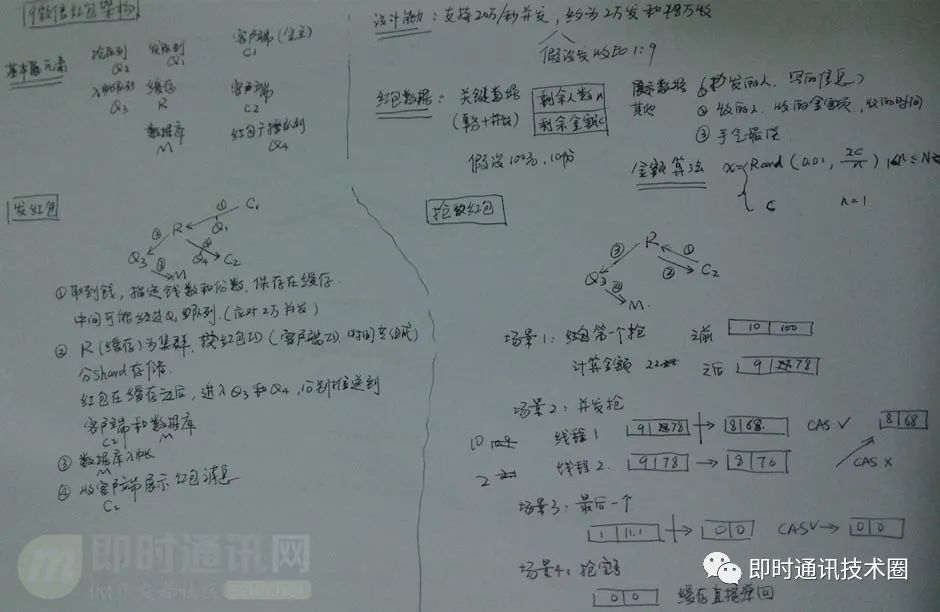 微信红包架构
基本元素
抢队列 Q2
发队列 Q1
客户端(土豪) C1
入帐队列 Q3
缓存 R
客户端 C2
数据库 M
红包广播队列 Q4
设计能力：支持20万/秒并发，约为2万发和18万收
假设发收比 1:9
红包数据：
关键数据
(事务+并发)
剩余人数n
剩余金额C
假设100元，10份
展示数据
其他
② 收的人、收的金额、收的时间
③ 手气最佳
金额算法
x = Rand (0.01, 2C/n)
C n=1
发红包
① C1 Q1
R
② ④
Q3 Q4 C2
③ M
① 取到钱，指定钱数和份数，保存在缓存
中间可能经过Q1队列.(应对2万并发)
② R(缓存)为集群，按红包ID(客户端ID、时间等组成)
分Shard存储.
红包在缓存之后，进入Q3和Q4，分别推送到
客户端和数据库
C2 M
③ 数据库入帐
M
④ 收客户端展示红包消息
C2
抢红包
R
③ ① ②
Q3 C2
M
场景1：红包第一个抢 之前 10 100
计算金额 22 之后 9 78
场景2：并发抢
10 线程1 9 78 → 8 68 CAS √ 8 68
2 线程2. 9 78 → 8 76 CAS X
场景3：最后一个
1 11.1 → 0 0 CAS√ → 0 0
场景4：抢空
0 0 缓存直接弹回
即时通讯网
IM开发者社区 52im.net
即时通讯技术圈